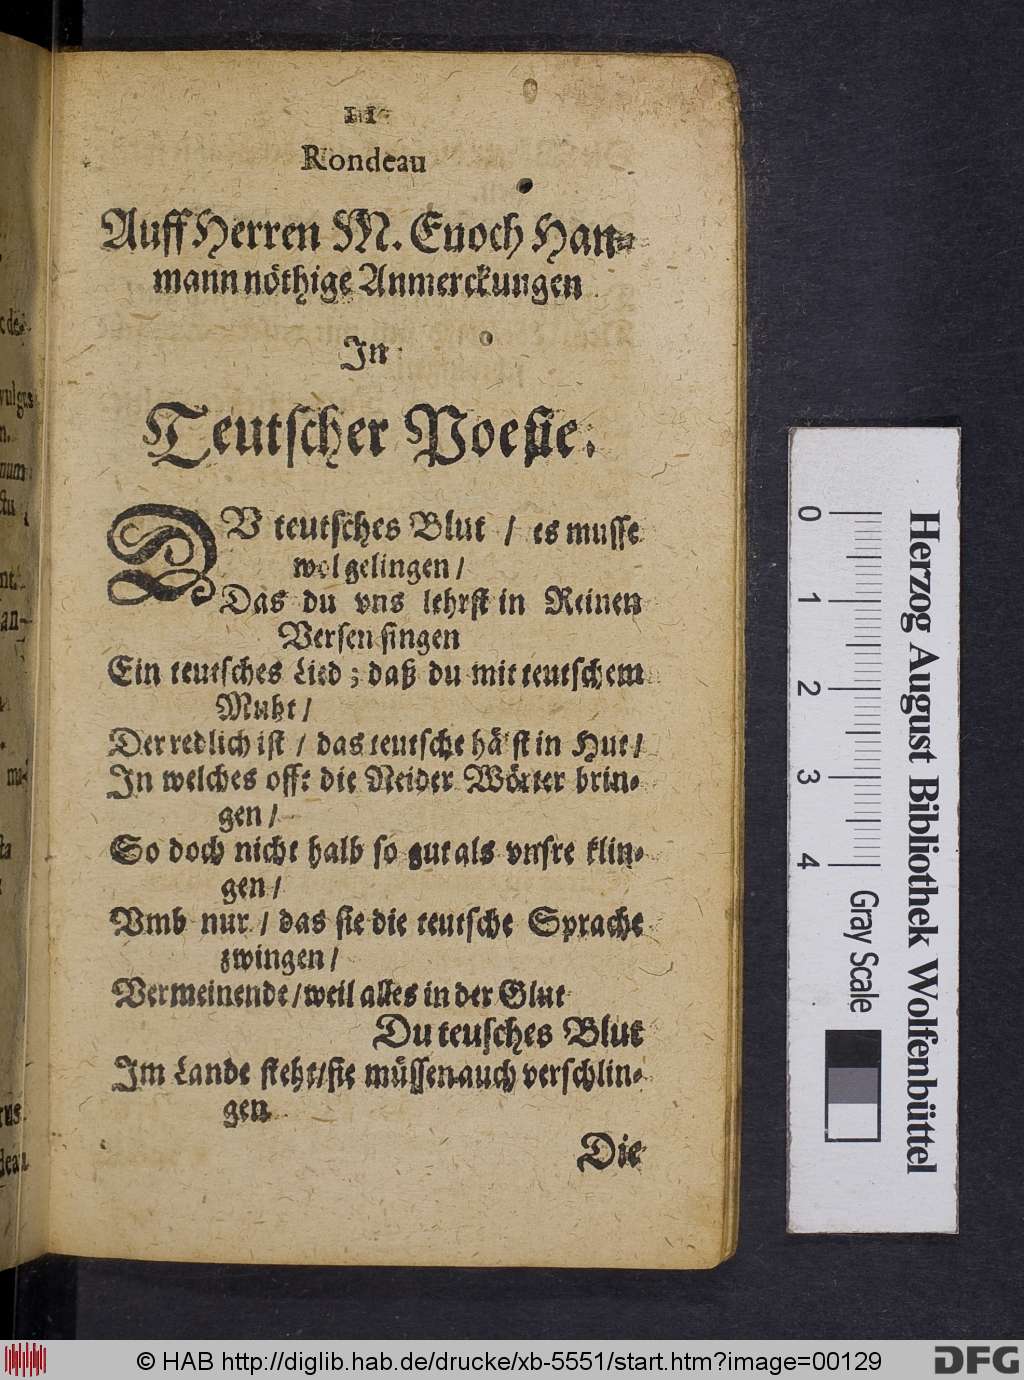 11
Rondeau
Auff Herren M. Enoch Han-
mann nöthige Anmerckungen
In
Teutscher Poesie.
DV teutsches Blut / es musse
wol gelingen /
Das du vns lehrst in Reinen
Versen singen
Ein teutsches Lied; daß du mit teutschem
Muht /
Der redlich ist / das teutsche hä'st in Hut /
In welches offt die Neider Wörter brin-
gen /
So doch nicht halb so gut als vnsre klin-
gen /
Vmb nur / das sie die teutsche Sprache
zwingen /
Vermeinende / weil alles in der Glut
Du teusches Blut
Im Lande steht / sie müssen auch verschlin-
gen
Die
0 1 2 3 4
Gray Scale
Herzog August Bibliothek Wolfenbüttel
© HAB http://diglib.hab.de/drucke/xb-5551/start.htm?image=00129
DFG